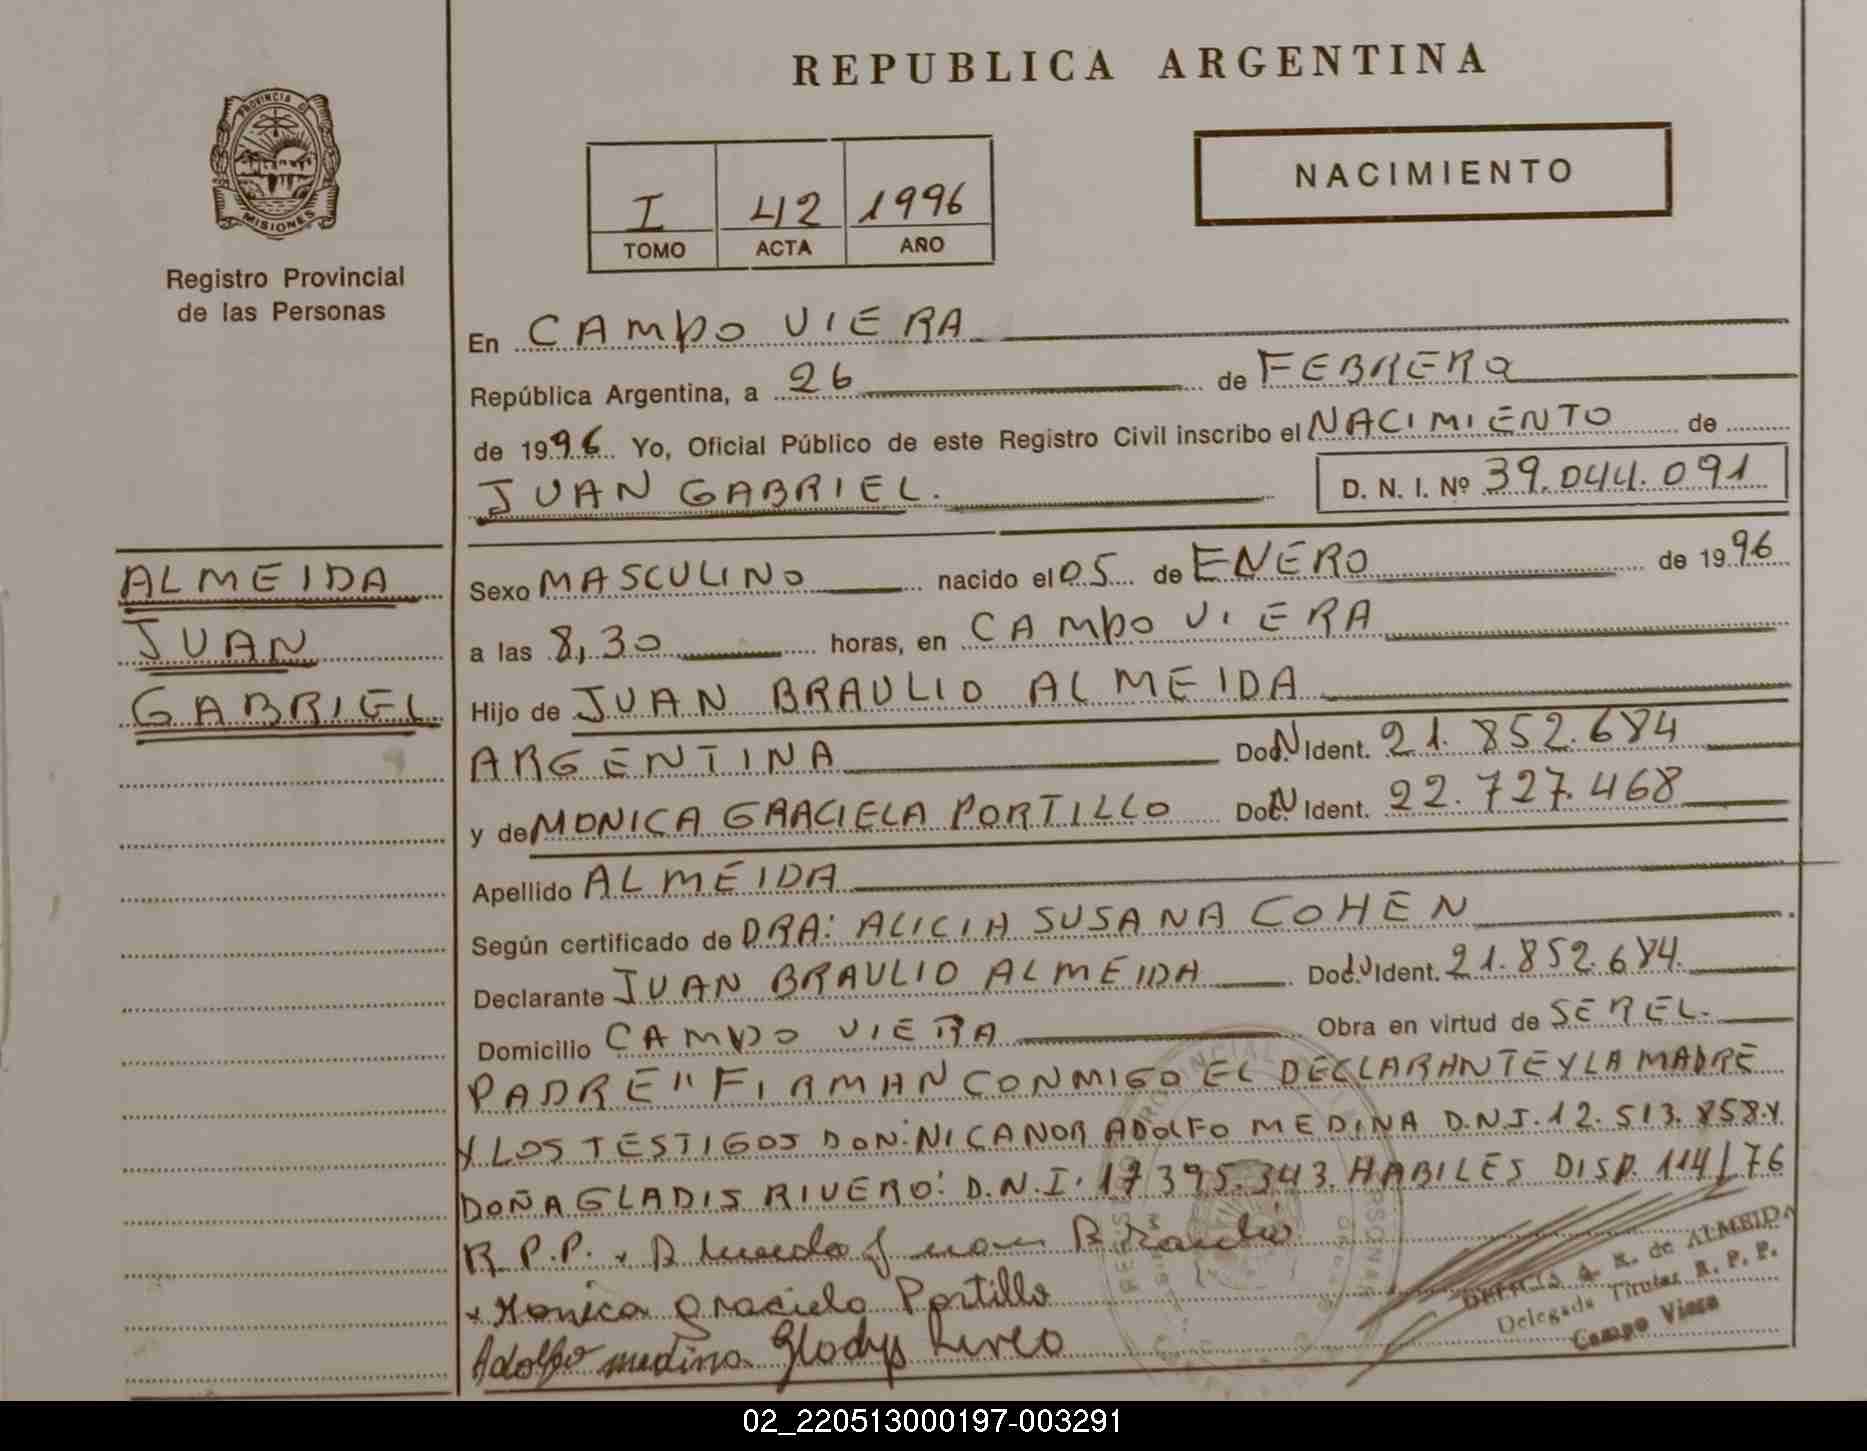 REPUBLICA ARGENTINA
PROVINCIA D
MISIONES
Registro Provincial
de las Personas
I 42 1996
TOMO ACTA AÑO
NACIMIENTO
En CAMPO VIERA
República Argentina, a 26 de FEBRERO
de 1996 Yo, Oficial Público de este Registro Civil inscribo el NACIMIENTO de
JUAN GABRIEL. D. N. I. Nº 39.044.091
ALMEIDA
JUAN
GABRIEL
Sexo MASCULINO nacido el 05 de ENERO de 1996
a las 8,30 horas, en CAMPO VIERA
Hijo de JUAN BRAULIO ALMEIDA
ARGENTINA Doc. N Ident. 21.852.684
y de MONICA GRACIELA PORTILLO Doc. N Ident. 22.727.468
Apellido ALMEIDA
Según certificado de DRA: ALICIA SUSANA COHEN
Declarante JUAN BRAULIO ALMEIDA Doc. N Ident. 21.852.684.
Domicilio CAMPO VIERA Obra en virtud de SER EL.
PADRE" FIRMAN CONMIGO EL DECLARANTE Y LA MADRE
Y LOS TESTIGOS DON: NICANOR ADOLFO MEDINA D.N.I. 12.513.858.Y
DOÑA GLADIS RIVERO: D.N.I. 17 395.343. HABILES DISP. 114/76
R.P.P. x Almeida Juan Braulio
x Monica Graciela Portillo
Adolfo medina Gladys Rivero
A. K. de ALMEIDA
Delegada Titular R. P. P.
Campo Viera
02_220513000197-003291